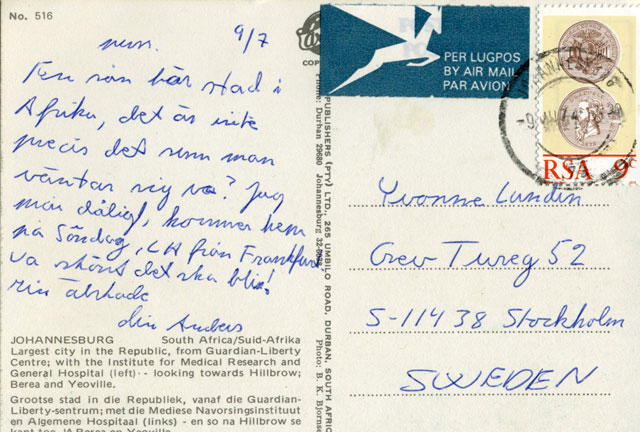 No. 516
9/7
COP
En sån här stad i
Afrika, det är inte
precis det som man
väntar sig va? Jag
mår dåligt, kommer hem
på Söndag, LH från Frankfurt
va skönt det ska bli!
din älskade
din Anders
JOHANNESBURG South Africa/Suid-Afrika
Largest city in the Republic, from Guardian-Liberty
Centre; with the Institute for Medical Research and
General Hospital (left) -- looking towards Hillbrow;
Berea and Yeoville.
Grootse stad in die Republiek, vanaf die Guardian-
Liberty-sentrum; met die Mediese Navorsingsinstituut
en Algemene Hospitaal (links) - en so na Hillbrow se
kant toe, Berea en Yeoville.
PUBLISHERS (PTY) LTD., 265 UMBILO ROAD, DURBAN, SOUTH AFRIC
Phone: Durban 29680 Johannesburg
Photo: B. K. Bjornse
PER LUGPOS
BY AIR MAIL
PAR AVION
RSA 9c
Yvonne Lundin
Grev Tureg 52
S-114 38 Stockholm
SWEDEN